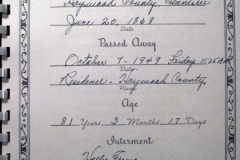 Haywood County, Tennessee
June 20, 1868
Date
Passed Away
October 7 - 1949 Friday 11:25 A.M.
Date
Residence - Haywood County,
Place
Age
81 Years 3 Months 17 Days
Interment